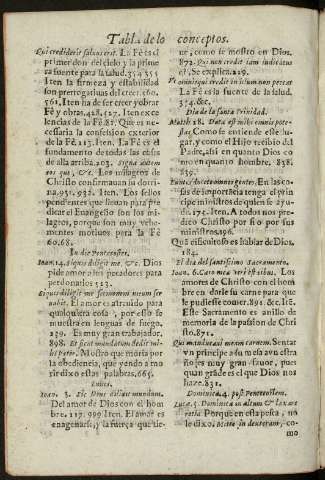 Tabla de lo conceptos.
Qui crediderit saluus erit. La Fè es el
primer don del cielo y la prime
ra fuente para la salud. 354 355
Iten la firmeza y estabilidad
son prerrogatiuas del creer. 360.
361. Iten ha de ser creer y obrar
Fè y obras. 428. 527. Iten exce
lencias de la Fè. 87. Que es ne-
cessaria la confession exterior
de la Fè. 113. Iten. La Fè es el
fundamento de todas las cosas
de alla arriba. 203. Signa autem
eos quæ, &c. Los milagros de
Christo confirmauan su dotri-
na. 931. 932. Iten. Los fieles
pendientes que lleuan para pre
dicar el Euangelio son los mi-
lagros, porque son muy vehe-
mentes motiuos para la Fè
60. 68.
In die Pentecostes.
Ioan. 14. Si quis diligit me, &c. Dios
pide amor a los pecadores para
perdonarlos 313.
Si quis diligit me sermonem meum ser
uabit. El amor es atreuido para
qualquiera cosa, por esso se
muestra en lenguas de fuego.
239. Es muy gran trabajador.
898. Et sicut mandatum dedit mi-
hi pater. Mostrò que moria por
la obediencia, que yendo a mo
rir dixo estas palabras. 665.
Ioan. 3. Sic Deus dilexit mundum.
Del amor de Dios con el hom
bre. 117. 999 Iten. El amor es
enagenarse, y la fuerça que tie-
ne, como se mostrò en Dios.
872. Qui non credit iam iudicatus
est, Se explica. 219.
Vt omnis qui credit in ipsum non pereat
La Fè es la fuente de la salud.
354. &c.
Dia de la santa Trinidad.
Matth. 28. Data est mihi omnis pote-
stas, Como se entiende este lu-
gar, y como el Hijo recibio del
Padre, assi en quanto Dios co
mo en quanto hombre. 838.
839.
Euntes docete omnes gentes. En las co-
sas de importãcia tenga el prin
cipe ministros de quien se ayu-
de. 175. Iten. A todos nos pre-
dicò Christo por si o por sus
ministros. 196.
Què dificultoso es hablar de Dios.
184.
El dia del santissimo Sacramento.
Ioan. 6. Caro mea verè est cibus. Los
amores de Christo con el hom
bre en darle su carne para que
le pudiesse comer. 891. &c. Ite.
Este Sacramento es anillo de
memoria de la passion de Chri
sto. 871.
Qui manducat meam carnem. Sentar
vn principe a su mesa a vn estra
ño es muy gran fauor, pues
quan grãde es el que Dios nos
haze. 831.
Dominica. 4. post Pentecostem.
Luc. 5. Duc in altum & laxate
retia Porque en esta pesca, no
le dixo,
mo